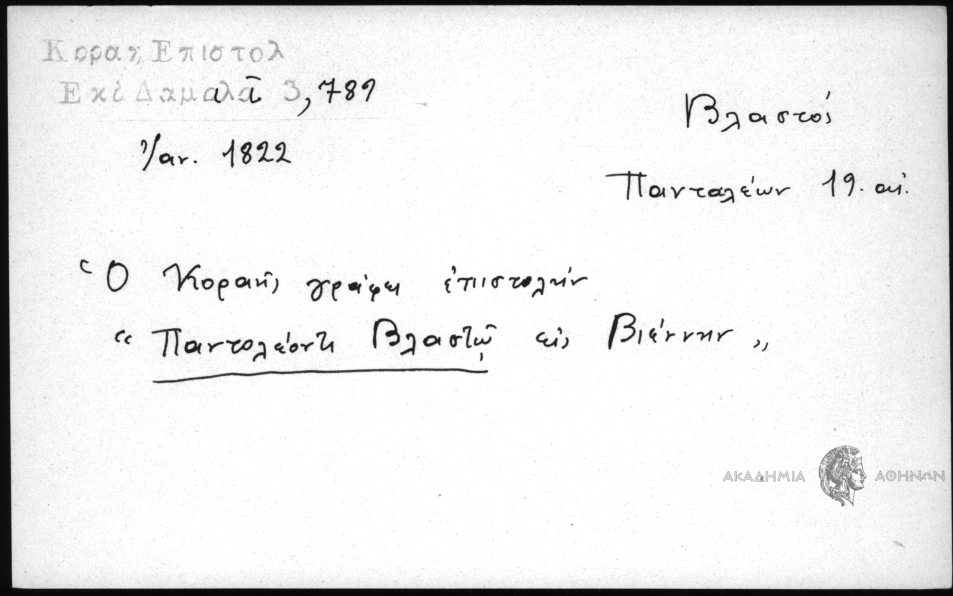 Κοραῆς Επιστολ
Εκδ Δαμαλᾶ 3, 789
Ἰαν. 1822
Βλαστός
Πανταλέων 19. αἰ.
Ὁ Κοραῆς γράφει ἐπιστολήν
“ Παντολέοντι Βλαστῷ εἰς Βιέννην „
ΑΚΑΔΗΜΙΑ ΑΘΗΝΩΝ